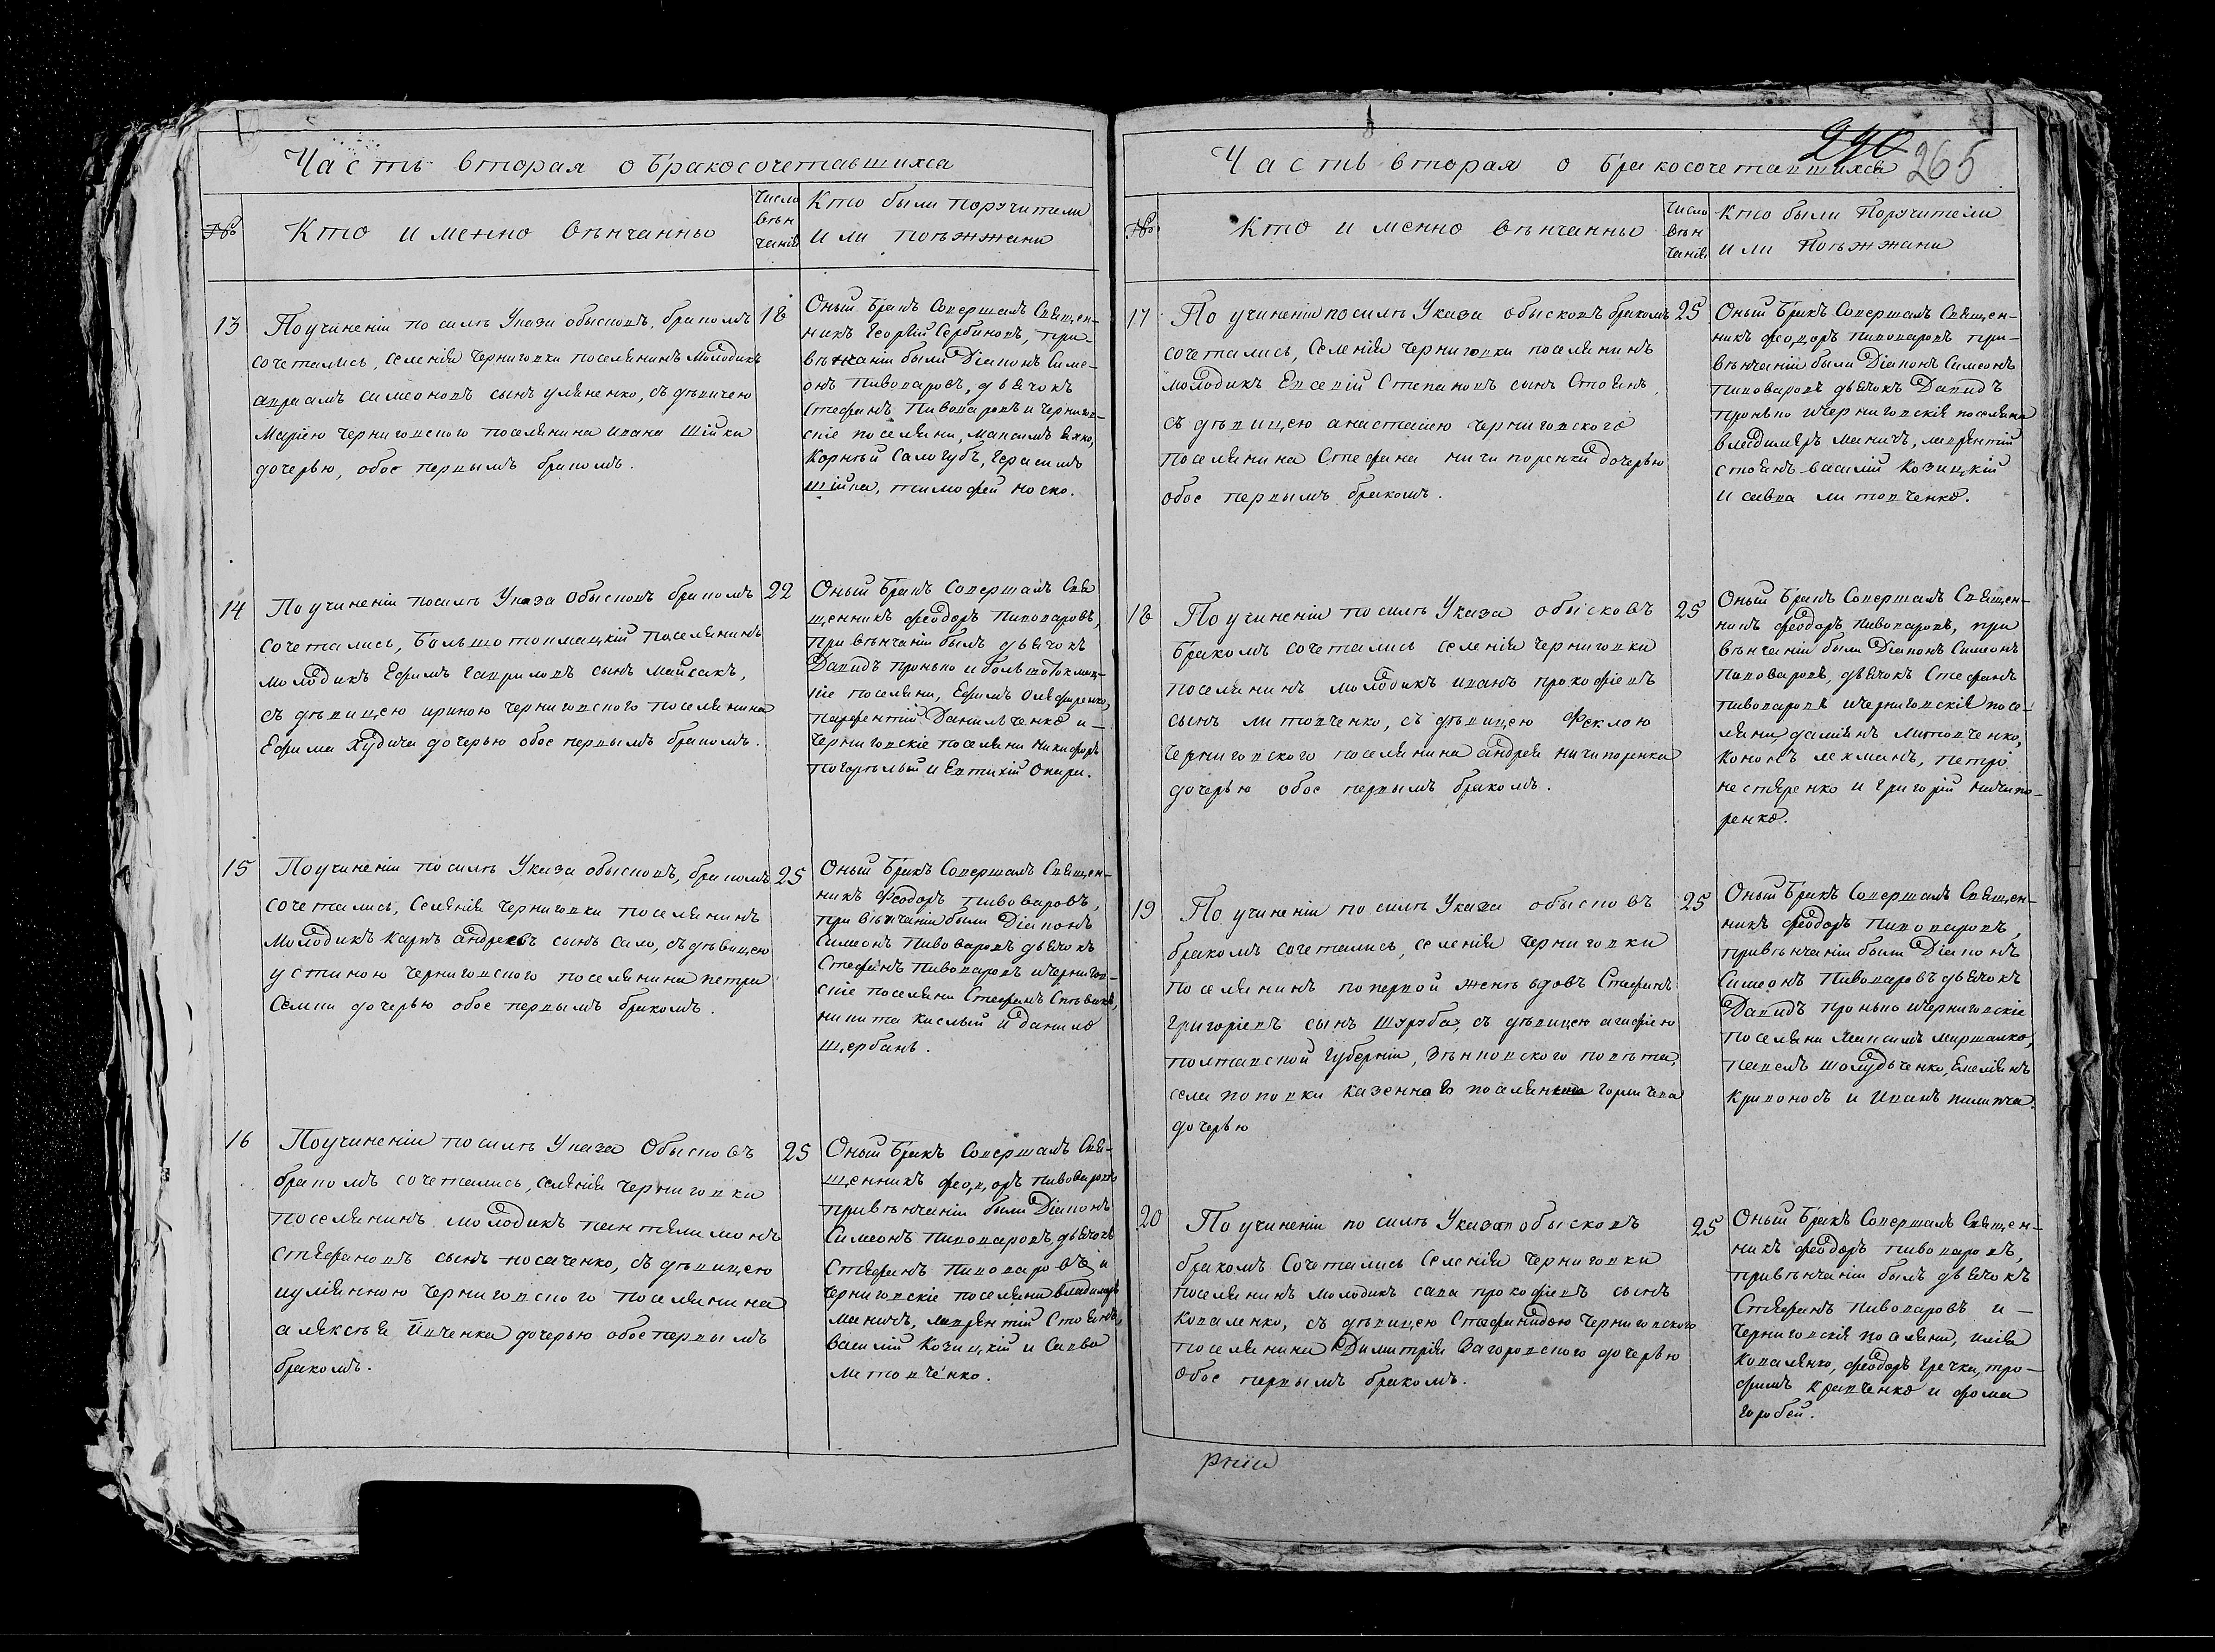 Часть вторая о бракосочетавшихся
№
Кто именно вѣнчанны
Число
вѣн
чанія
Кто были поручители
или поѣзжани
13
По учиненіи по силѣ Указа обысковъ, бракомъ
сочетались, селенія Черниговки поселянинъ молодикъ
авраамъ симеоновъ сынъ уляненко, съ дѣвицею
Маріею черниговского поселянина ивана Шійки
дочерью, обое первымъ бракомъ.
18
Оный бракъ совершалъ Священ-
никъ Георгій Сербиновъ, при-
вѣнчаніи были Діаконъ Симе-
онъ Пивоваровъ, дьячокъ
Стефанъ Пивоваровъ и чернигов-
скіе поселяни, Максимъ
Корнѣй Салогубъ, Герасимъ
Шійка, тимофей носко.
14
По учиненіи по силѣ Указа обысковъ бракомъ
сочетались, Большотокмацкій поселянинъ
молодикъ Ефимъ гавриловъ сынъ майсакъ,
съ дѣвицею ириною черниговского поселянина
Ефима Худича дочерью обое первымъ бракомъ.
22
Оный бракъ совершалъ Свя
щенникъ феодоръ Пивоваровъ,
при вѣнчаніи былъ дьячокъ
Давидъ пронько и большотокмац-
кіе поселяни, Ефимъ Олефиренко,
парфентій Данильченко и-
черниговскіе поселяни никифоръ
погорѣлый и Евтихій Окара.
15
По учиненіи по силѣ Указа обысковъ, бракомъ
сочетались, Селенія черниговки поселянинъ
Молодикъ карпъ андреевъ сынъ Сало, съ дѣвицею
устиною черниговского поселянина петра
Сѣмки дочерью обое первымъ бракомъ.
25
Оный бракъ совершалъ Священ-
никъ Феодоръ пивоваровъ,
при вѣнчаніи были Діаконъ
Симеонъ Пивоваровъ дьячокъ
Стефанъ Пивоваровъ и чернигов-
скіе поселяни Стефанъ
никита кислый и данило
щербань.
16
По учиненіи по силѣ Указа Обысковъ
бракомъ сочетались, селенія черниговки
поселянинъ молодикъ пантелимонъ
Стефановъ сынъ носаченко, съ дѣвицею
иулянною черниговского поселянина
алексѣя Ивченка дочерью обое первымъ
бракомъ.
25
Оный бракъ совершалъ Свя-
щенникъ феодоръ пивоваровъ
при вѣнчаніи были Діаконъ
Симеонъ Пивоваровъ, дьячокъ
Стефанъ Пивоваровъ и
черниговскіе поселяни владимиръ
маничъ, лаврентій Стоянъ,
василій Козицкій и Савва
литовченко.
290
265
Часть вторая о бракосочетавшихся
№
Кто именно вѣнчанны
Число
вѣн
чанія
Кто были Поручители
или Поѣзжани
17
По учиненіи по силѣ Указа обысковъ бракомъ
сочетались, Селенія черниговки поселянинъ
молодикъ Евсевій Степановъ сынъ Стоянъ,
съ дѣвицею анастасіею черниговского
поселянина Стефана ничипоренка дочерью
обое первымъ бракомъ.
25
Оный бракъ совершалъ Священ-
никъ феодоръ пивоваровъ при-
вѣнчаніи были Діаконъ Симеонъ
Пивоваровъ дьячокъ Давидъ
пронько и черниговскіе поселяна
владимиръ маничъ, лаврентій
стоянъ василій Козицкій
и савва литовченко.
18
По учиненіи по силѣ Указа обысковъ
бракомъ сочетались селенія черниговки
поселянинъ молодикъ иванъ прокофіевъ
сынъ литовченко, съ дѣвицею Феклою
черниговского поселянина андрея ничипоренка
дочерью обое первымъ бракомъ.
25
Оный бракъ совершалъ Священ-
никъ феодоръ пивоваровъ, при
вѣнчаніи были Діаконъ Симеонъ
Пивоваровъ, дьячокъ Стефанъ
пивоваровъ и черниговскіе посе-
ляни, даміянъ литовченко,
Кононъ лехманъ, петро
нестеренко и григорій ничипо-
ренко.
19
По учиненіи по силѣ Указа обысковъ
бракомъ сочетались, селенія черниговки
поселянинъ по первой женѣ вдовъ Стефанъ
григоріевъ сынъ Шуруба, съ дѣвицею агафіею
полтавской губерніи, Зѣнковского повѣта,
села поповки казенного поселянина горличена
дочерью
25
Оный бракъ совершалъ Священ-
никъ феодоръ Пивоваровъ,
при вѣнчаніи были Діаконъ
Симеонъ Пивоваровъ дьячокъ
Давидъ пронько и черниговскіе
поселяни Максимъ маршалко,
павелъ шолудченко, Емелянъ
кривоносъ и Иванъ пилипча.
20
По учиненіи по силѣ Указа обысковъ
бракомъ сочетались селенія черниговки
поселянинъ молодикъ сава прокофіевъ сынъ
Коваленко, съ дѣвицею Стефанидою черниговского
поселянина Димитрія Загоровского дочерью
обое первымъ бракомъ.
25
Оный бракъ совершалъ Священ-
никъ феодоръ пивоваровъ,
при вѣнчаніи былъ дьячокъ
Стефанъ пивоваровъ и-
черниговскіе поселяни, илія
Коваленко, феодоръ гречка, тро-
фимъ кравченко и фома
горобей.